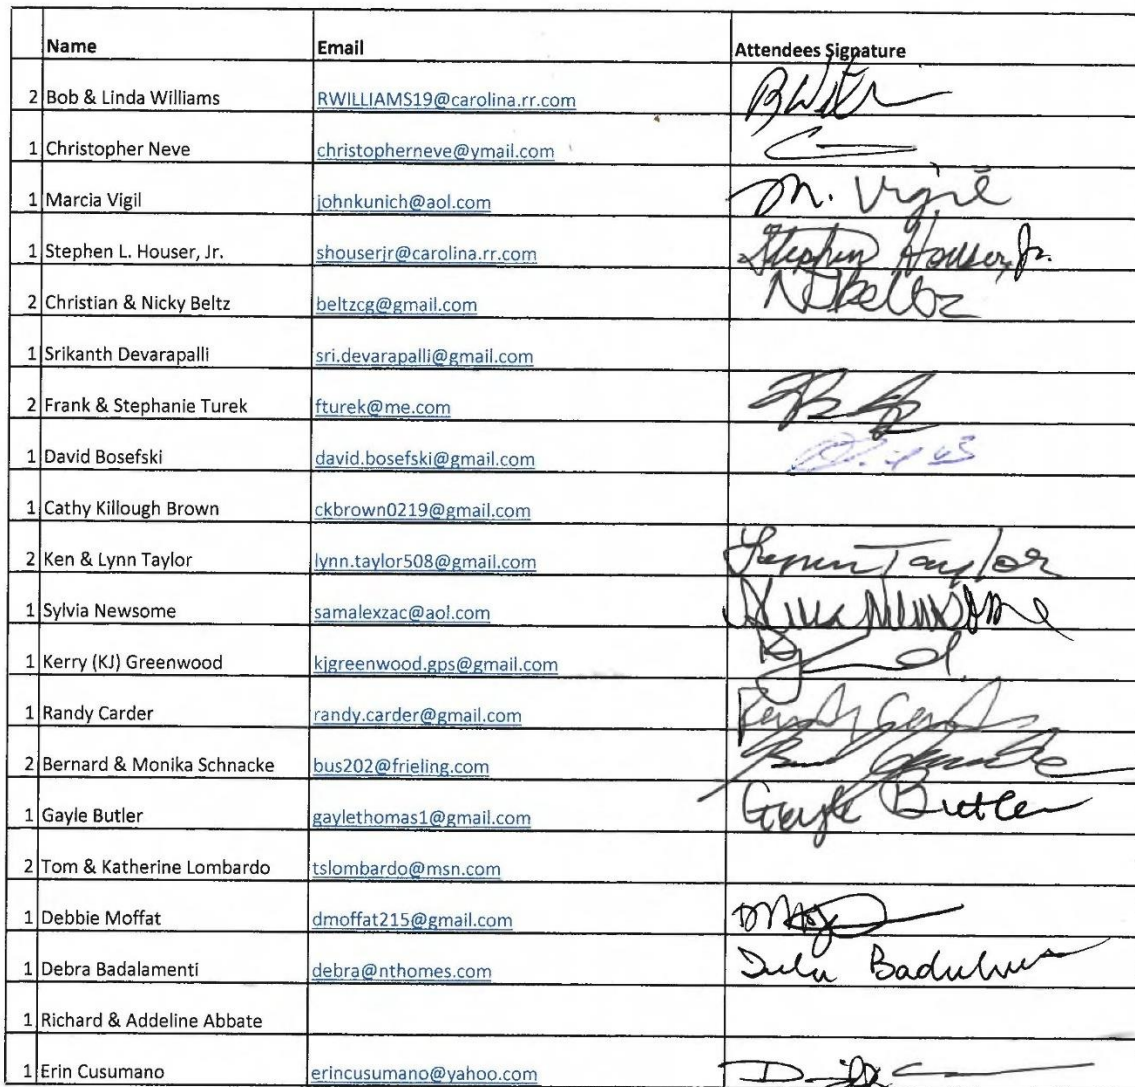 Name Email Attendees Signature
2 Bob & Linda Williams RWILLIAMS19@carolina.rr.com
1 Christopher Neve christopherneve@ymail.com
1 Marcia Vigil johnkunich@aol.com M. Vigil
1 Stephen L. Houser, Jr. shouserjr@carolina.rr.com Stephen Houser, Jr.
2 Christian & Nicky Beltz beltzcg@gmail.com N Beltz
1 Srikanth Devarapalli sri.devarapalli@gmail.com
2 Frank & Stephanie Turek fturek@me.com
1 David Bosefski david.bosefski@gmail.com
1 Cathy Killough Brown ckbrown0219@gmail.com
2 Ken & Lynn Taylor lynn.taylor508@gmail.com Lynn Taylor
1 Sylvia Newsome samalexzac@aol.com
1 Kerry (KJ) Greenwood kjgreenwood.gps@gmail.com
1 Randy Carder randy.carder@gmail.com
2 Bernard & Monika Schnacke bus202@frieling.com
1 Gayle Butler gaylethomas1@gmail.com Gayle Butler
2 Tom & Katherine Lombardo tslombardo@msn.com
1 Debbie Moffat dmoffat215@gmail.com
1 Debra Badalamenti debra@nthomes.com
1 Richard & Addeline Abbate
1 Erin Cusumano erincusumano@yahoo.com